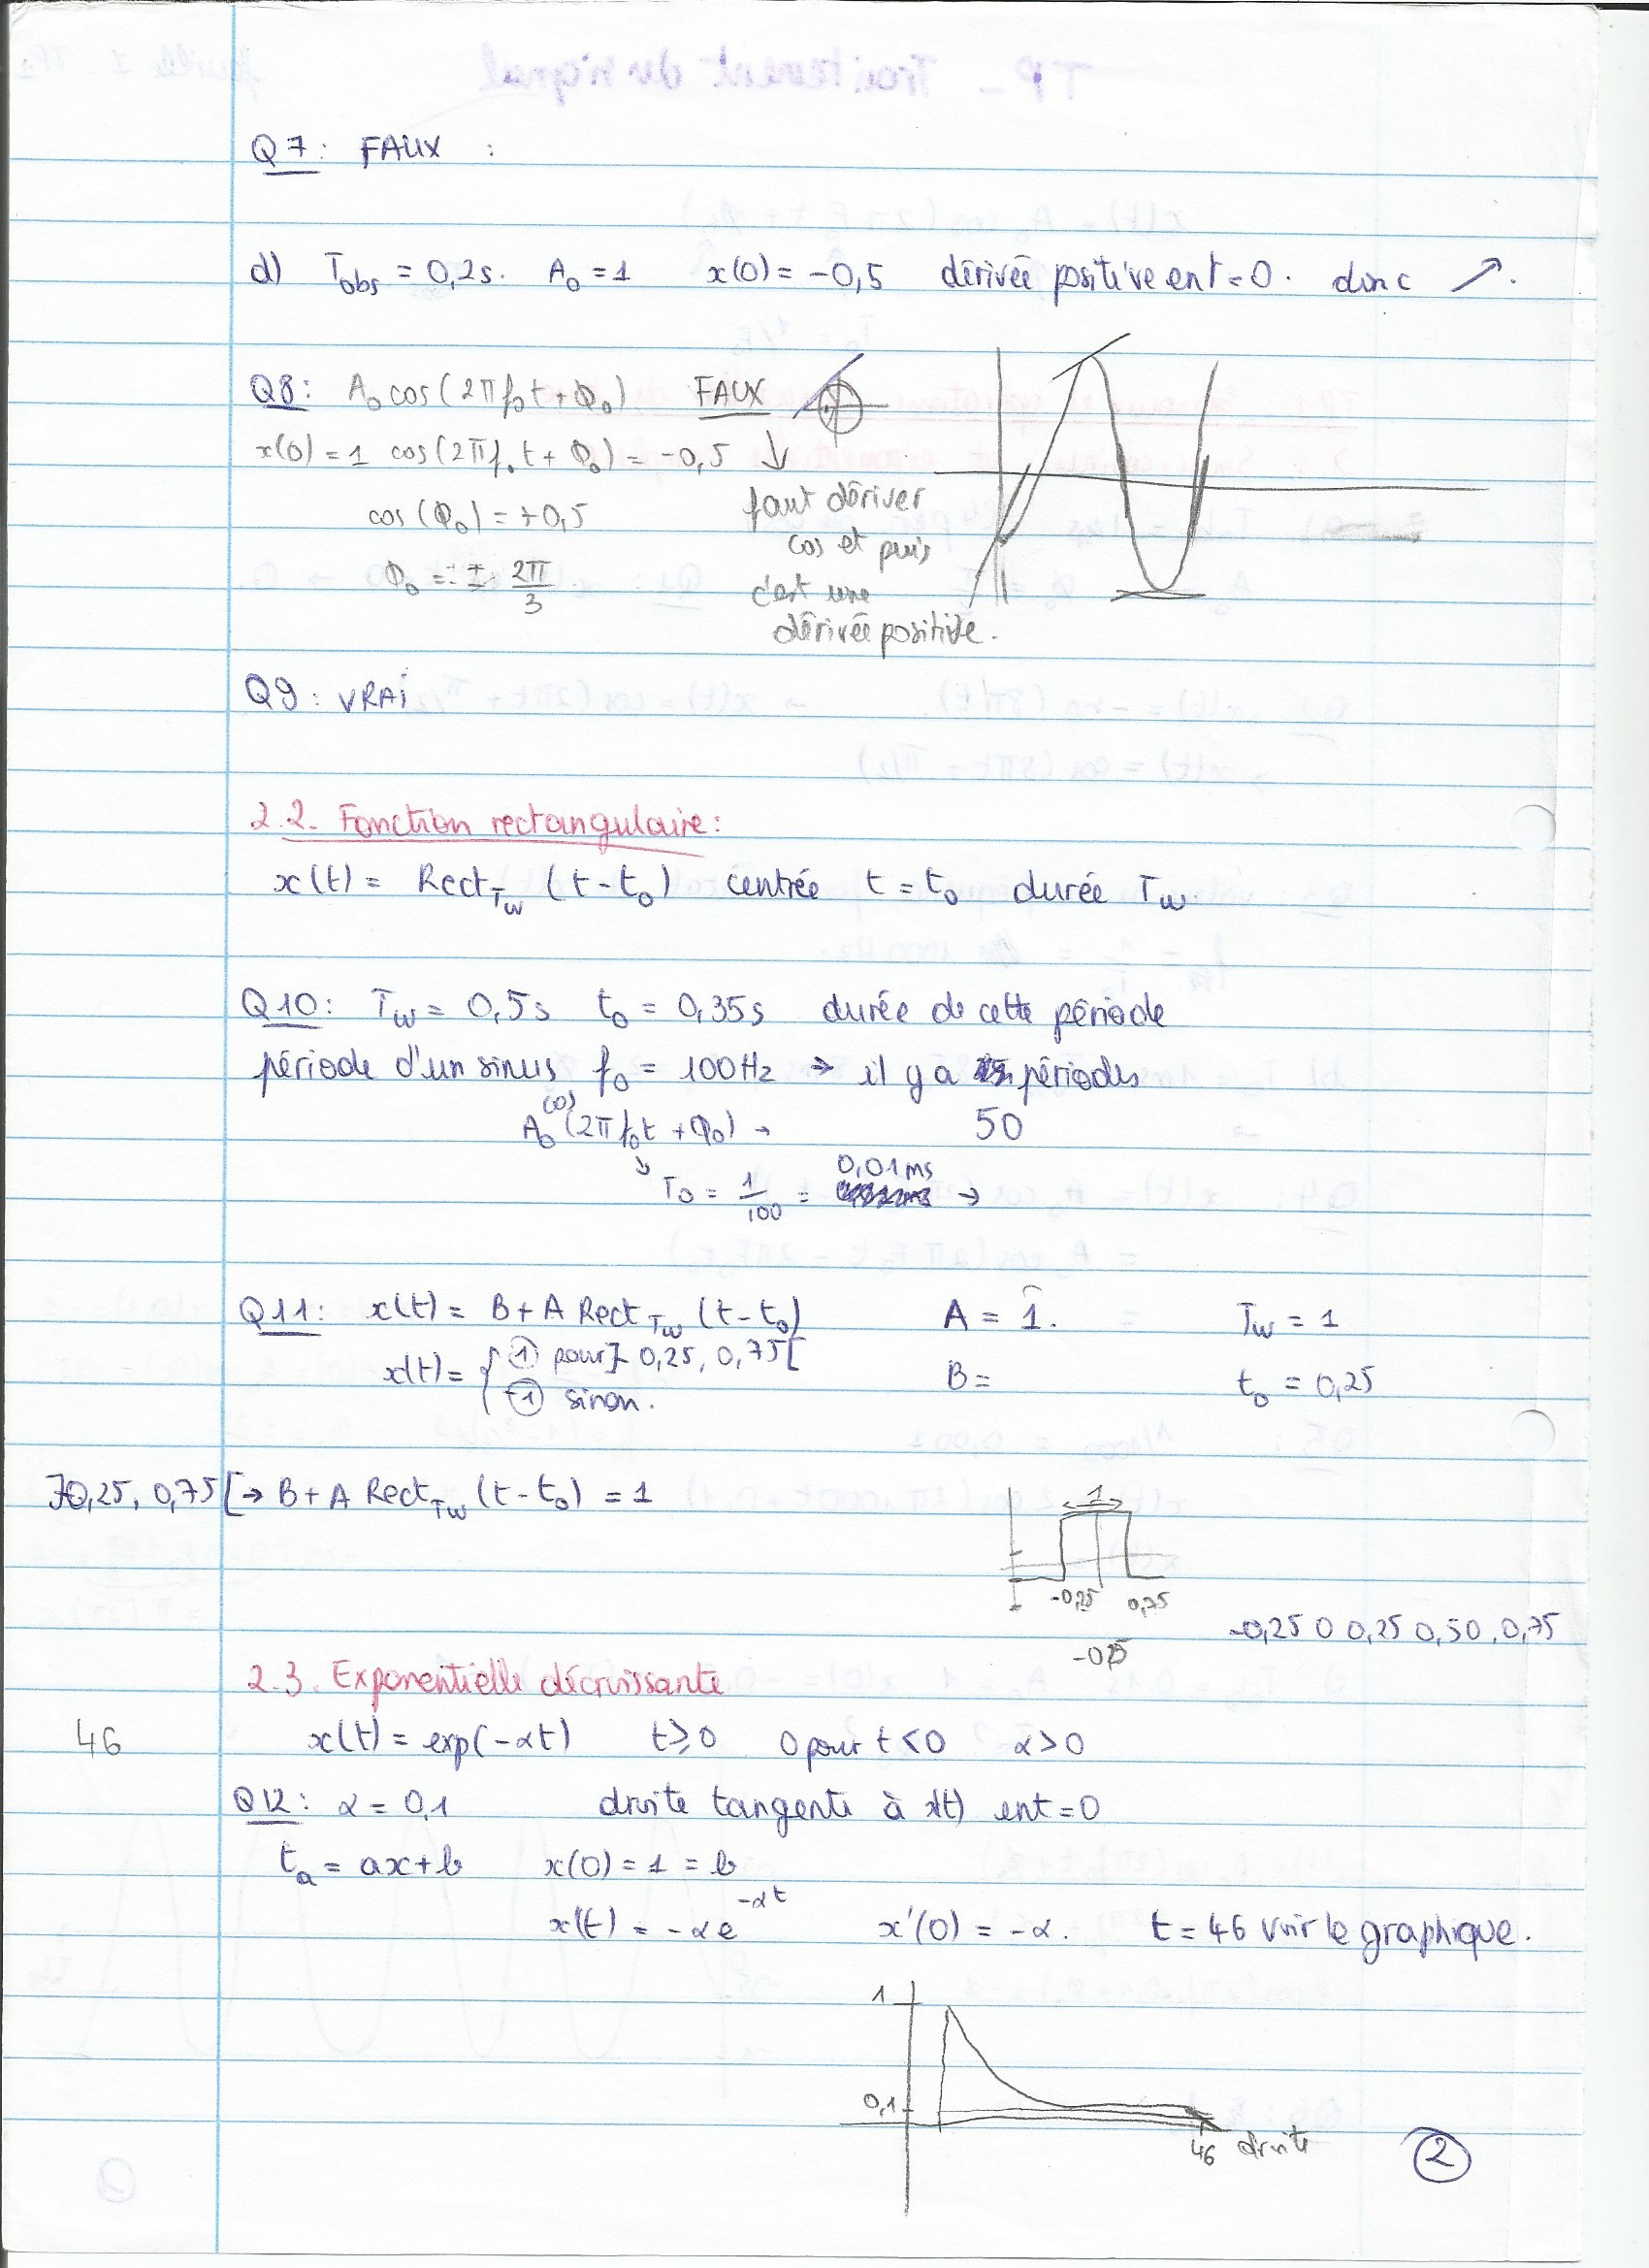 Q7: FAUX :
d) Tobs = 0,2s. A0 = 1 x(0) = -0,5 dérivée positive en t=0. donc ↗.
Q8: A0 cos(2πf0t+Φ0) FAUX
x(0) = 1 cos(2πf0t + Φ0) = -0,5 ↓
cos(Φ0) = +0,5
Φ0 = ± 2π/3
faut dériver
cos et puis
c'est une
dérivée positive.
Q9: VRAi
2.2. Fonction rectangulaire:
x(t) = RectTw (t-t0) centrée t = t0 durée Tw.
Q10: Tw = 0,5s t0 = 0,35s durée de cette période
période d'un sinus f0 = 100Hz → il y a périodes
A0 cos (2πf0t + Φ0) → 50
↘ T0 = 1/100 = 0,01ms →
Q11: x(t) = B+A RectTw (t-t0) A = 1. Tw = 1
x(t) = { 1 pour ]-0,25, 0,75[ B = t0 = 0,25
-1 sinon.
]-0,25, 0,75[ → B+A RectTw (t-t0) = 1
1
-0,25 0,75
-0,25 0 0,25 0,50 0,75
2.3. Exponentielle décroissante
46 x(t) = exp(-αt) t≥0 0 pour t<0 α>0
Q12: α = 0,1 droite tangente à x(t) en t=0
ta = ax+b x(0) = 1 = b
x(t) = -αe^-αt x'(0) = -α. t = 46 voir le graphique.
1
0,1
46 droite
2